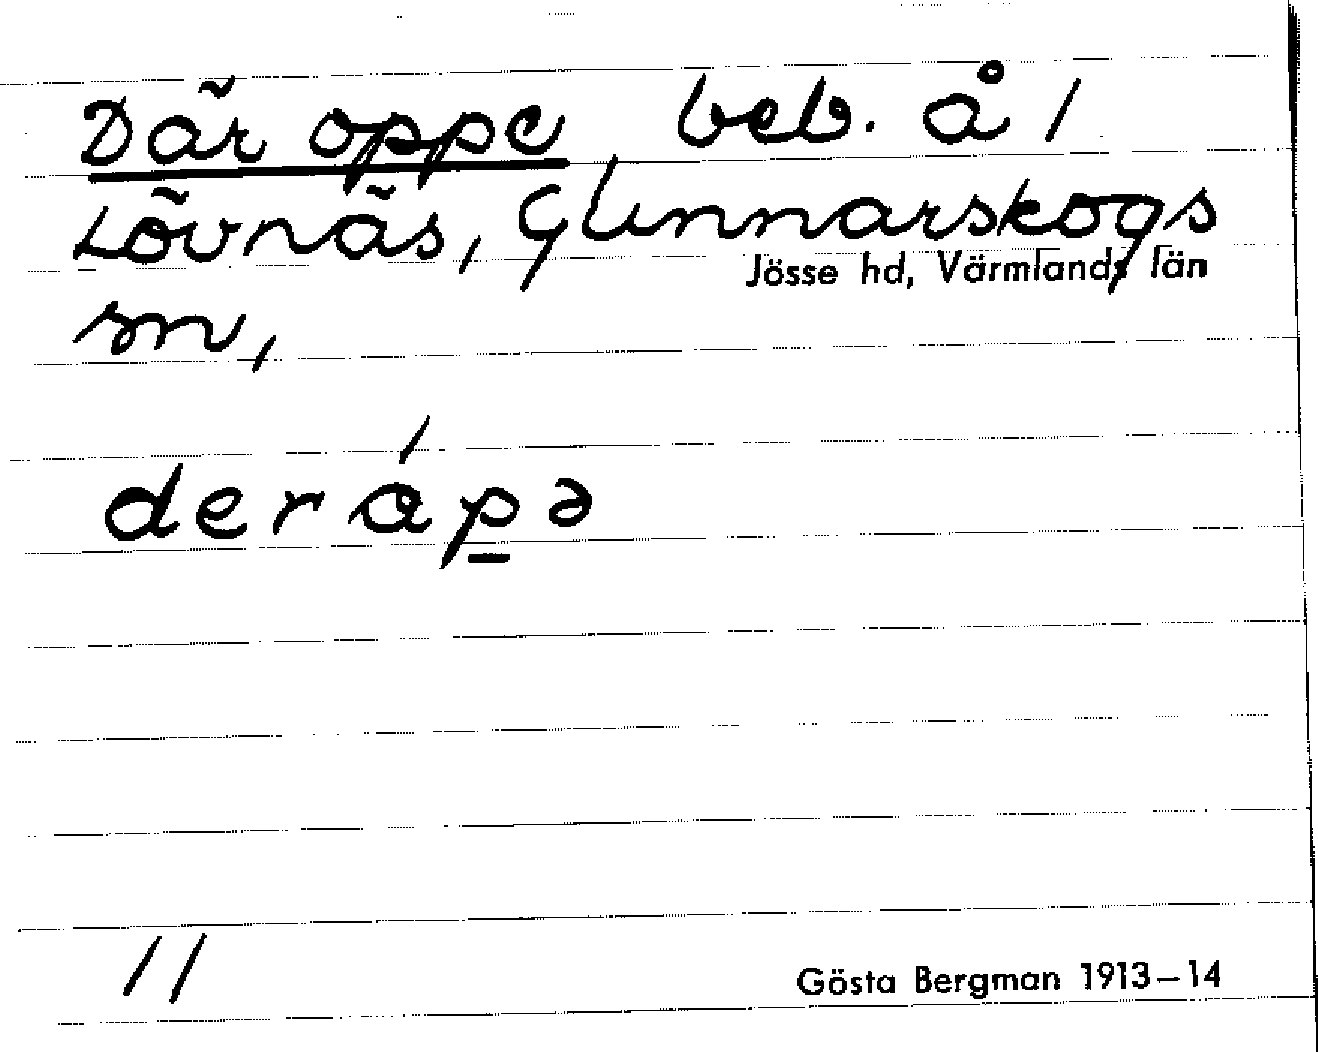 Där oppe beb. å 1
Lövnäs, Gunnarskogs
Jösse hd, Värmlands län
sn,
derápə
11
Gösta Bergman 1913–14